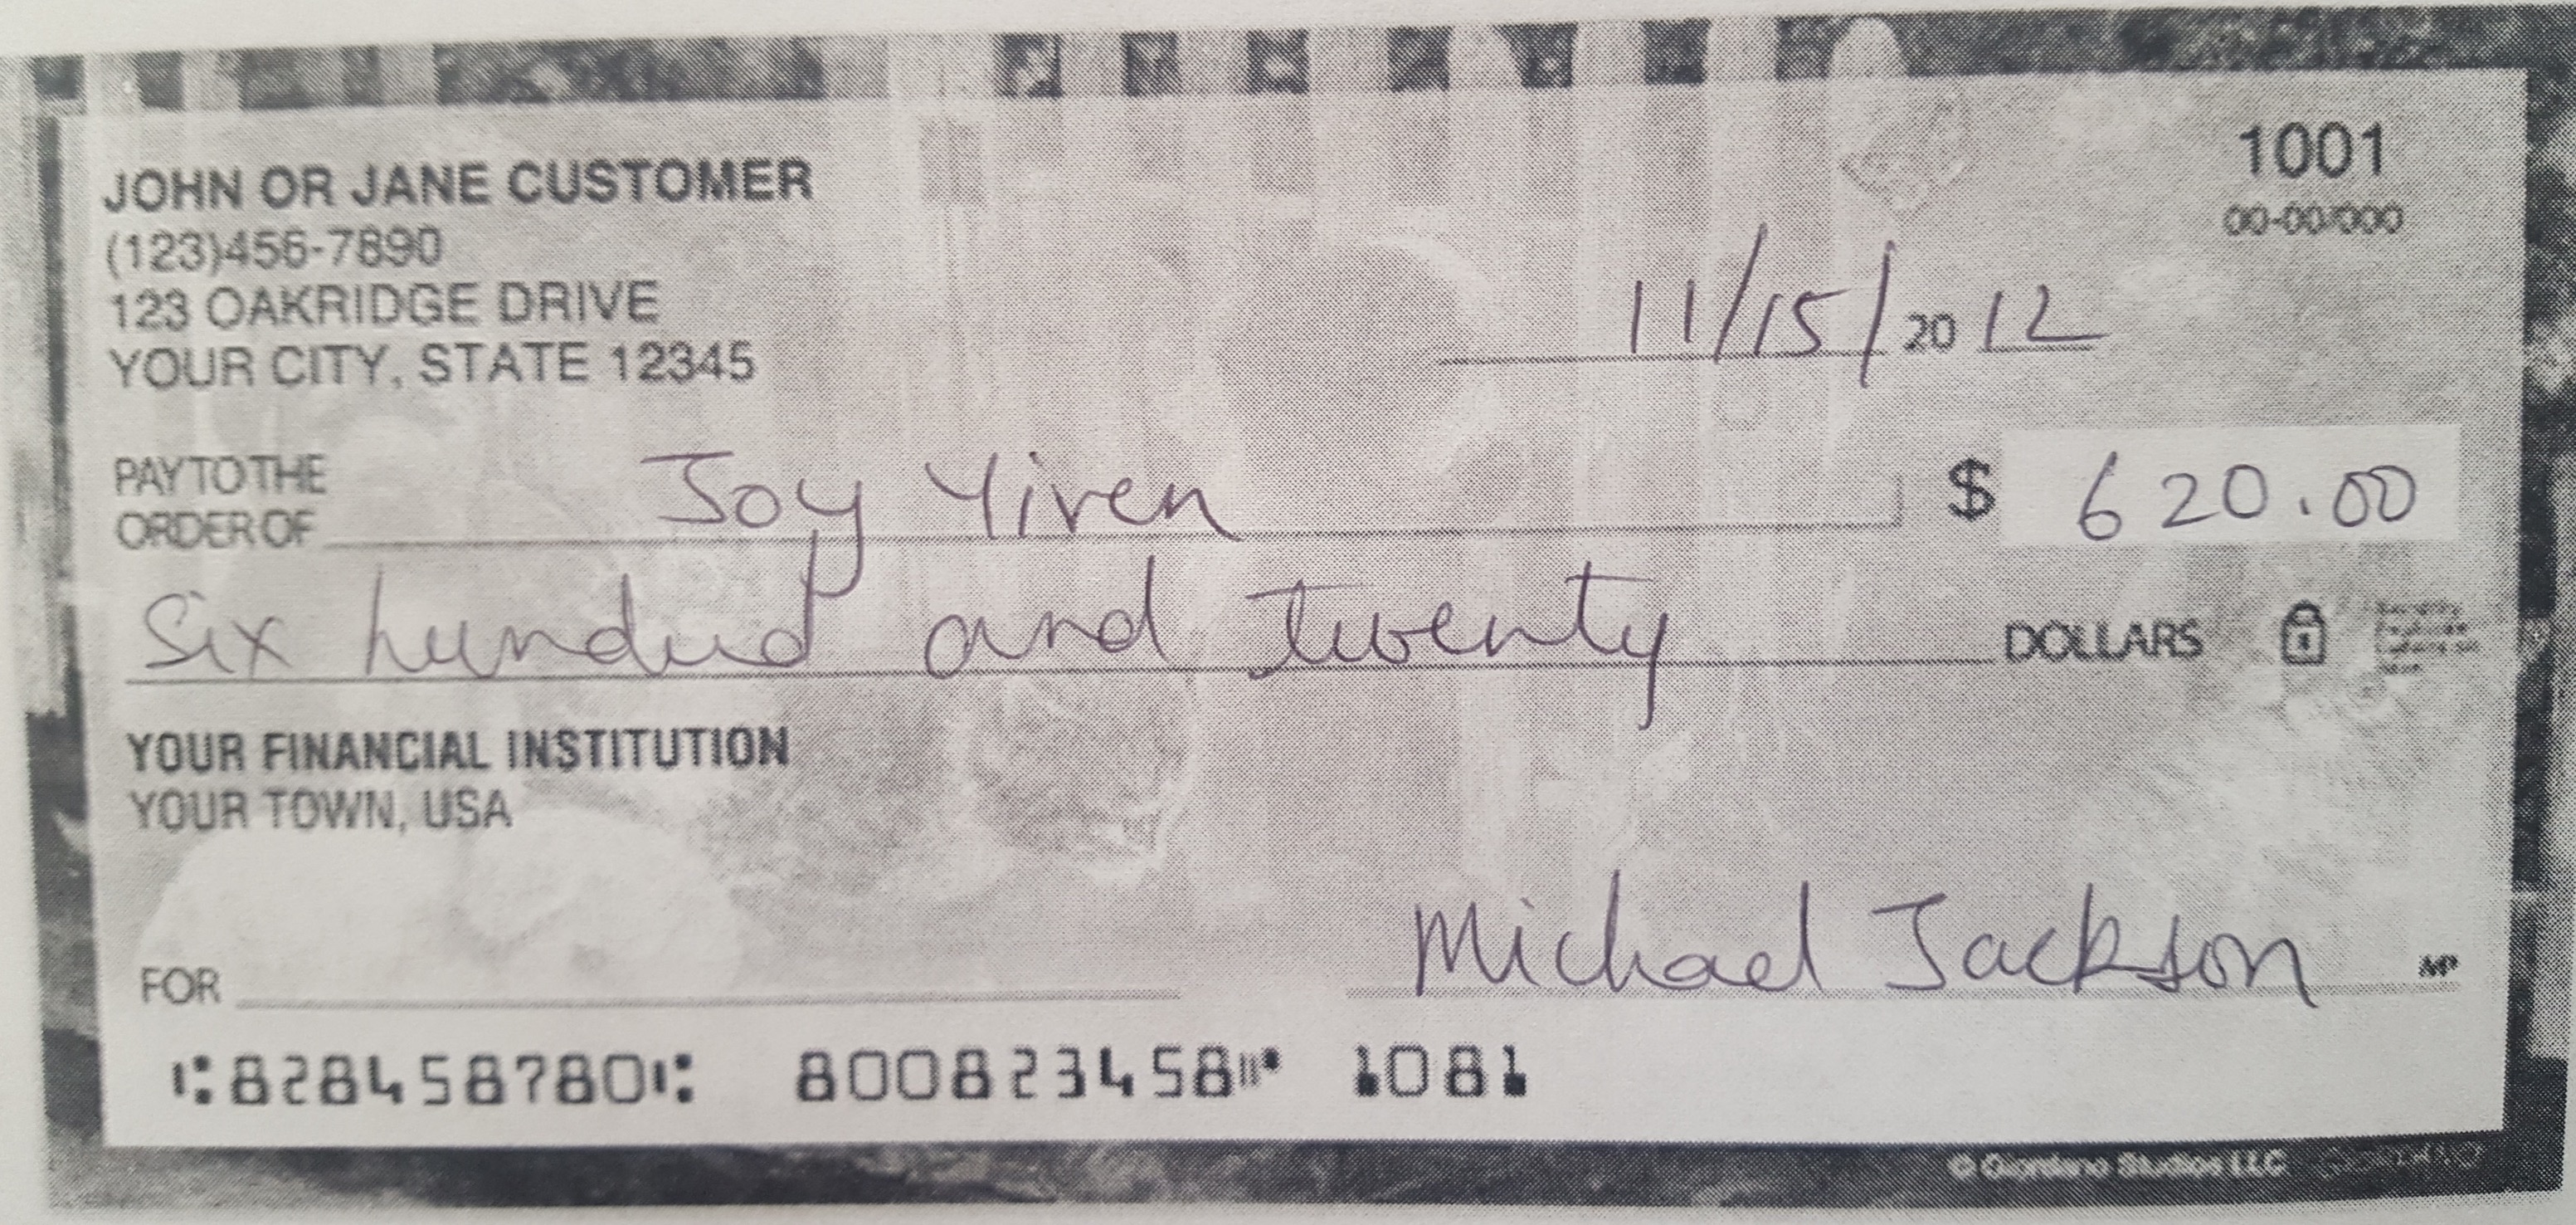 JOHN OR JANE CUSTOMER
1001
(123)456-7890
00-00/000
123 OAKRIDGE DRIVE
11/15/ 20 12
YOUR CITY, STATE 12345
PAY TO THE
ORDER OF Joy Yiren $ 620.00
Six hundred and twenty DOLLARS
YOUR FINANCIAL INSTITUTION
YOUR TOWN, USA
FOR Michael Jackson MP
⑆828458780⑆ 800823458⑈ 1081
© Giordano Studios LLC